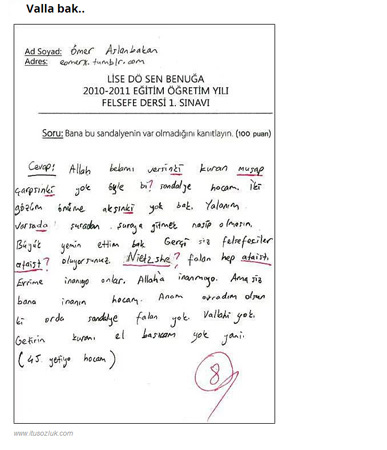 Valla bak..
Ad Soyad: Ömer Aslanbakan
Adres: eomerx.tumblr.com
LİSE DÖ SEN BENUĞA
2010-2011 EĞİTİM ÖĞRETİM YILI
FELSEFE DERSİ 1. SINAVI
Soru: Bana bu sandalyenin var olmadığını kanıtlayın. (100 puan)
Cevap: Allah belamı versinki kuran musap
çarpsınki yok öyle bi? sandalye hocam. İki
gözüm önüme aksınki yok bak. Yalanım
varsada şuradan şuraya gitmek nasip olmasın.
Büyük yemin ettim bak. Gerçi siz felsefeciler
ataist? oluyorsunuz. Nietzshe? falan hep ataist.
Evrime inanıyo onlar. Allah'a inanmıyo. Ama siz
bana inanın hocam. Anam avradım olsun
ki orda sandalye falan yok. Vallahi yok.
Getirin kuranı el basıcam yok yani.
(45 yetiyo hocam)
8
www.itusozluk.com